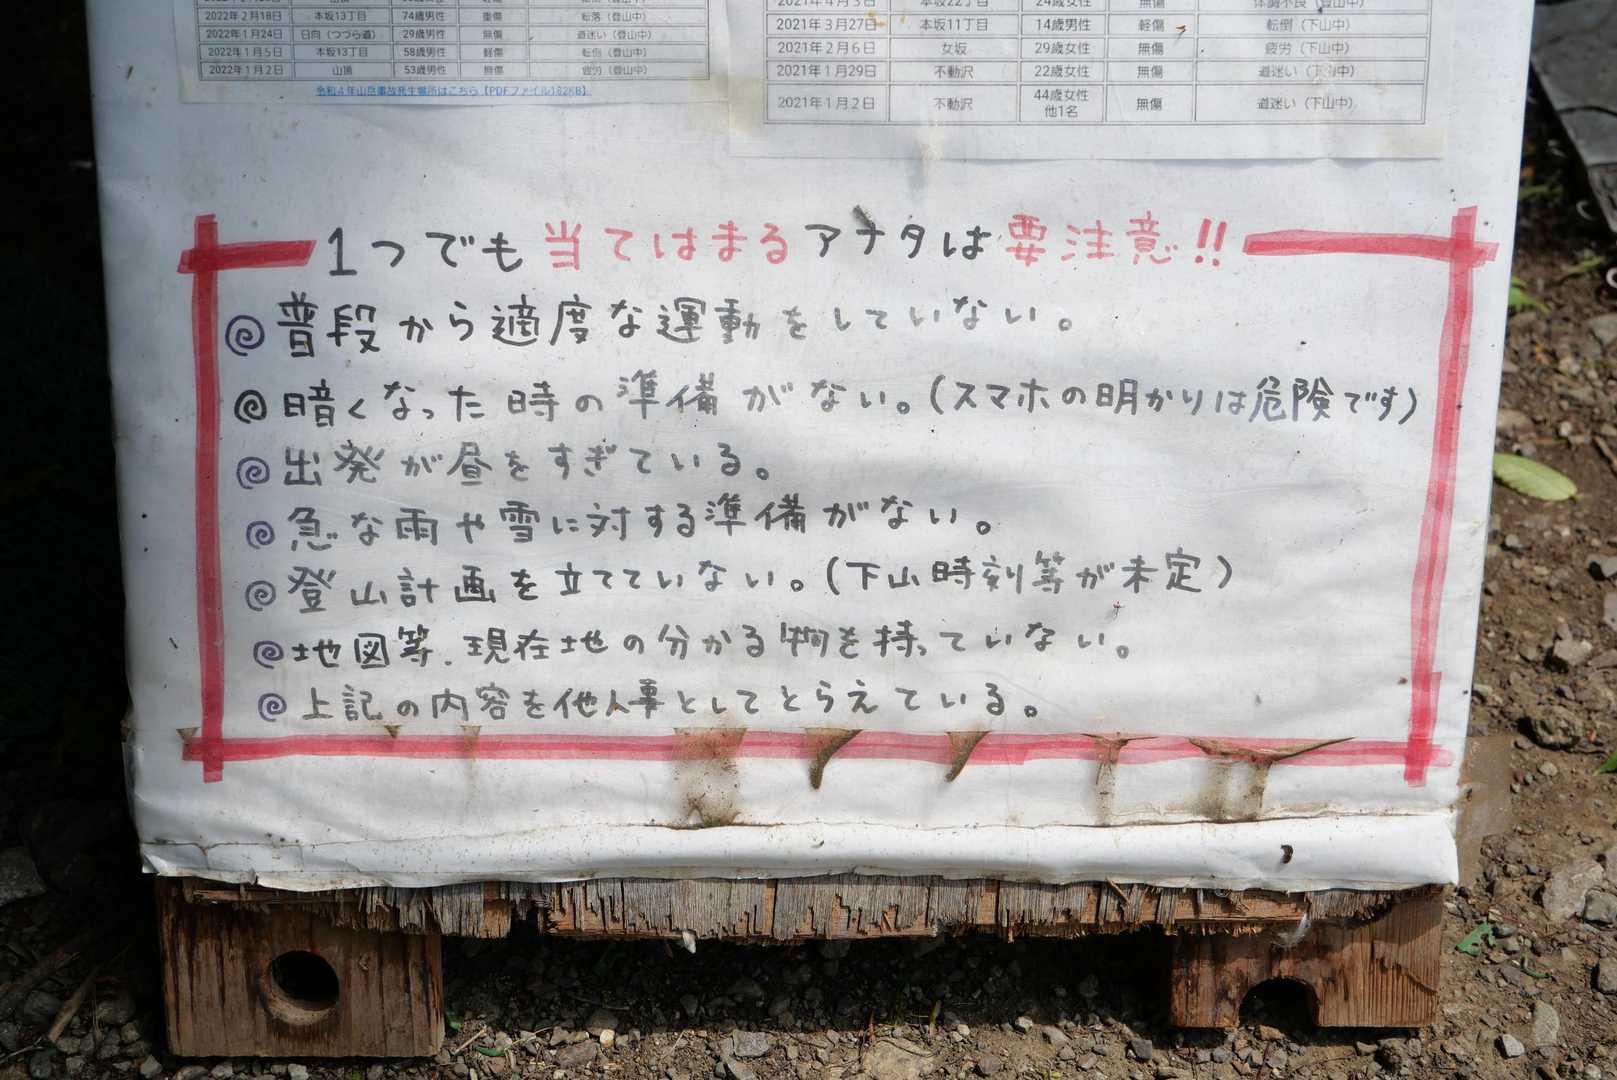 2022年2月18日 本坂13丁目 74歳男性 重傷 転落（登山中）
2022年1月24日 日向（つづら道） 29歳男性 無傷 道迷い（登山中）
2022年1月5日 本坂13丁目 58歳男性 軽傷 転倒（登山中）
2022年1月2日 山頂 53歳男性 無傷 疲労（登山中）
令和4年山岳事故発生場所はこちら【PDFファイル182KB】
2021年4月3日 本坂22丁目 24歳女性 無傷 体調不良（登山中）
2021年3月27日 本坂11丁目 14歳男性 軽傷 転倒（下山中）
2021年2月6日 女坂 29歳女性 無傷 疲労（下山中）
2021年1月29日 不動沢 22歳女性 無傷 道迷い（下山中）
2021年1月2日 不動沢 44歳女性 他1名 無傷 道迷い（下山中）
1つでも当てはまるアナタは要注意!!
普段から適度な運動をしていない。
暗くなった時の準備がない。（スマホの明かりは危険です）
出発が昼をすぎている。
急な雨や雪に対する準備がない。
登山計画を立てていない。（下山時刻等が未定）
地図等、現在地の分かる物を持っていない。
上記の内容を他人事としてとらえている。